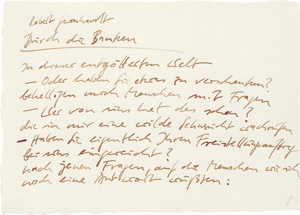 Robert Gernhardt
Durch die Banken
In dieser entgötterten Welt
– Oder haben Sie etwas zu verschenken?
behelligen mich Menschen mit Fragen
– Wer von uns hat das schon?
die in mir eine wilde Sehnsucht wachrufen
– Haben Sie eigentlich Ihren Freistellungsauftrag
bei uns eingereicht?
nach jenen Fragen, auf die Menschen
noch eine Antwort wüßten: